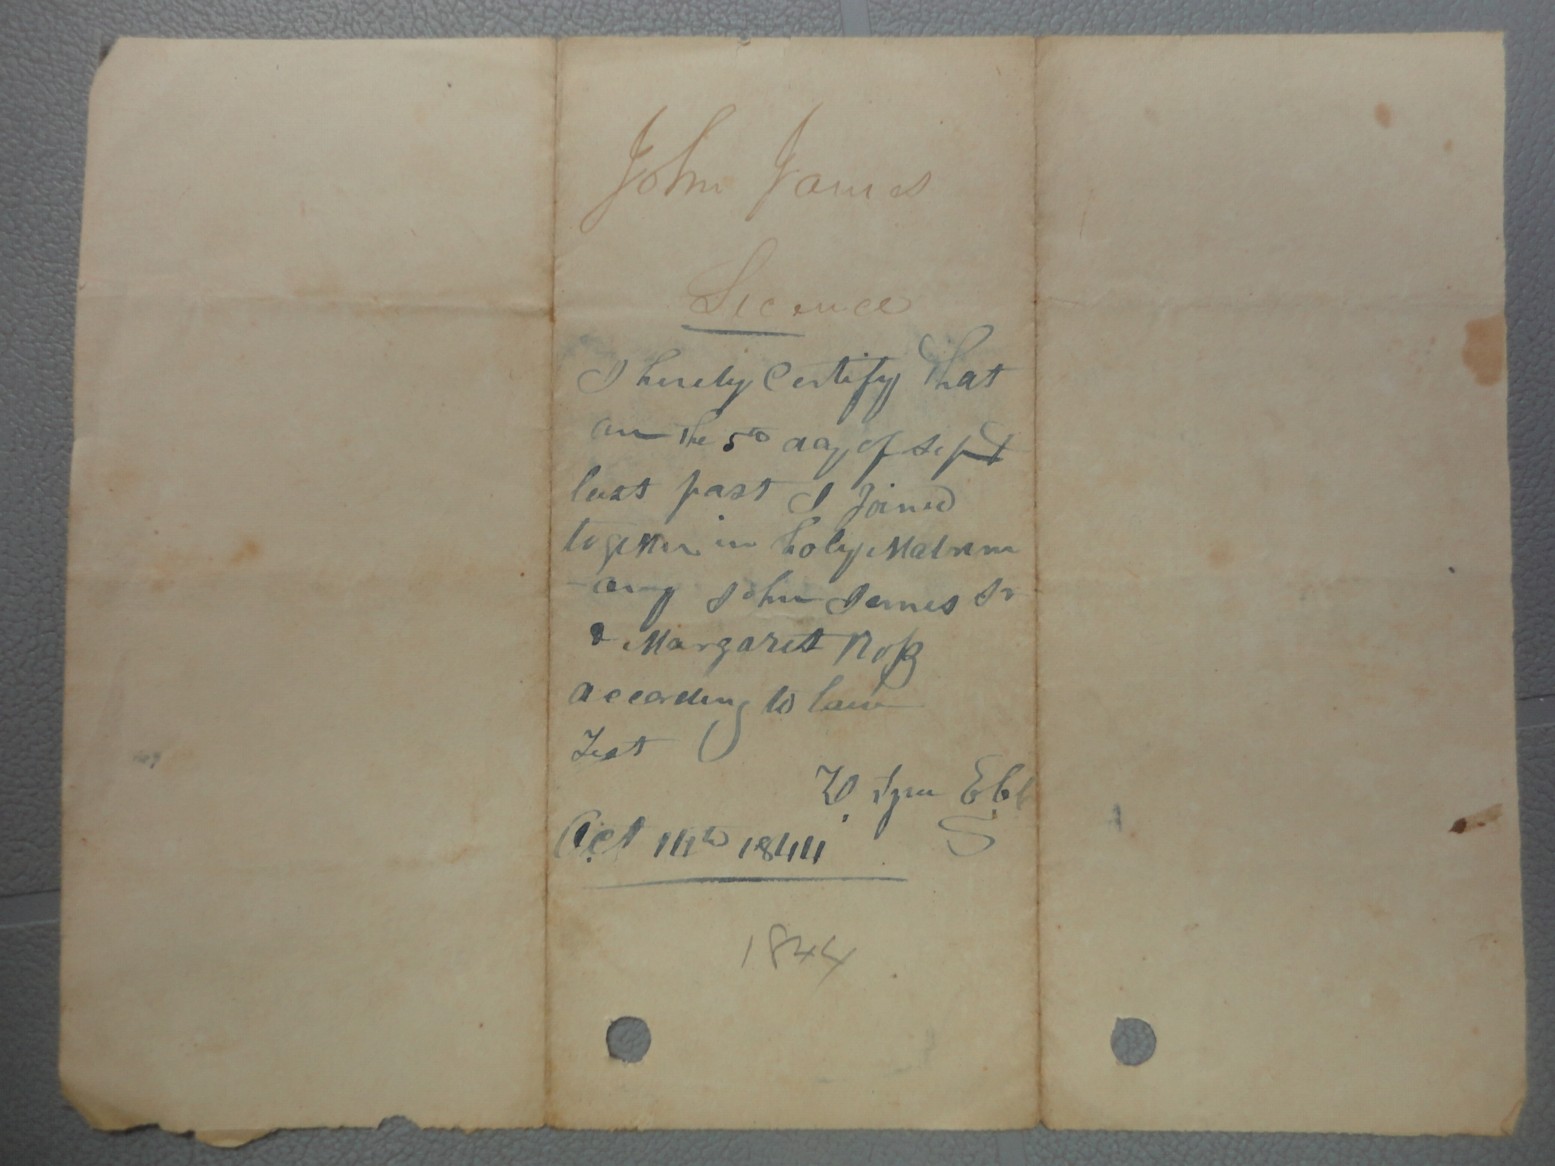 John James
Licence
I hereby Certify that
on the 5th day of Sept
last past I Joined
together in holy Matrim
ony John James Sr
& Margaret Roß
according to law
Test
W
Oct 14th 1844
1844